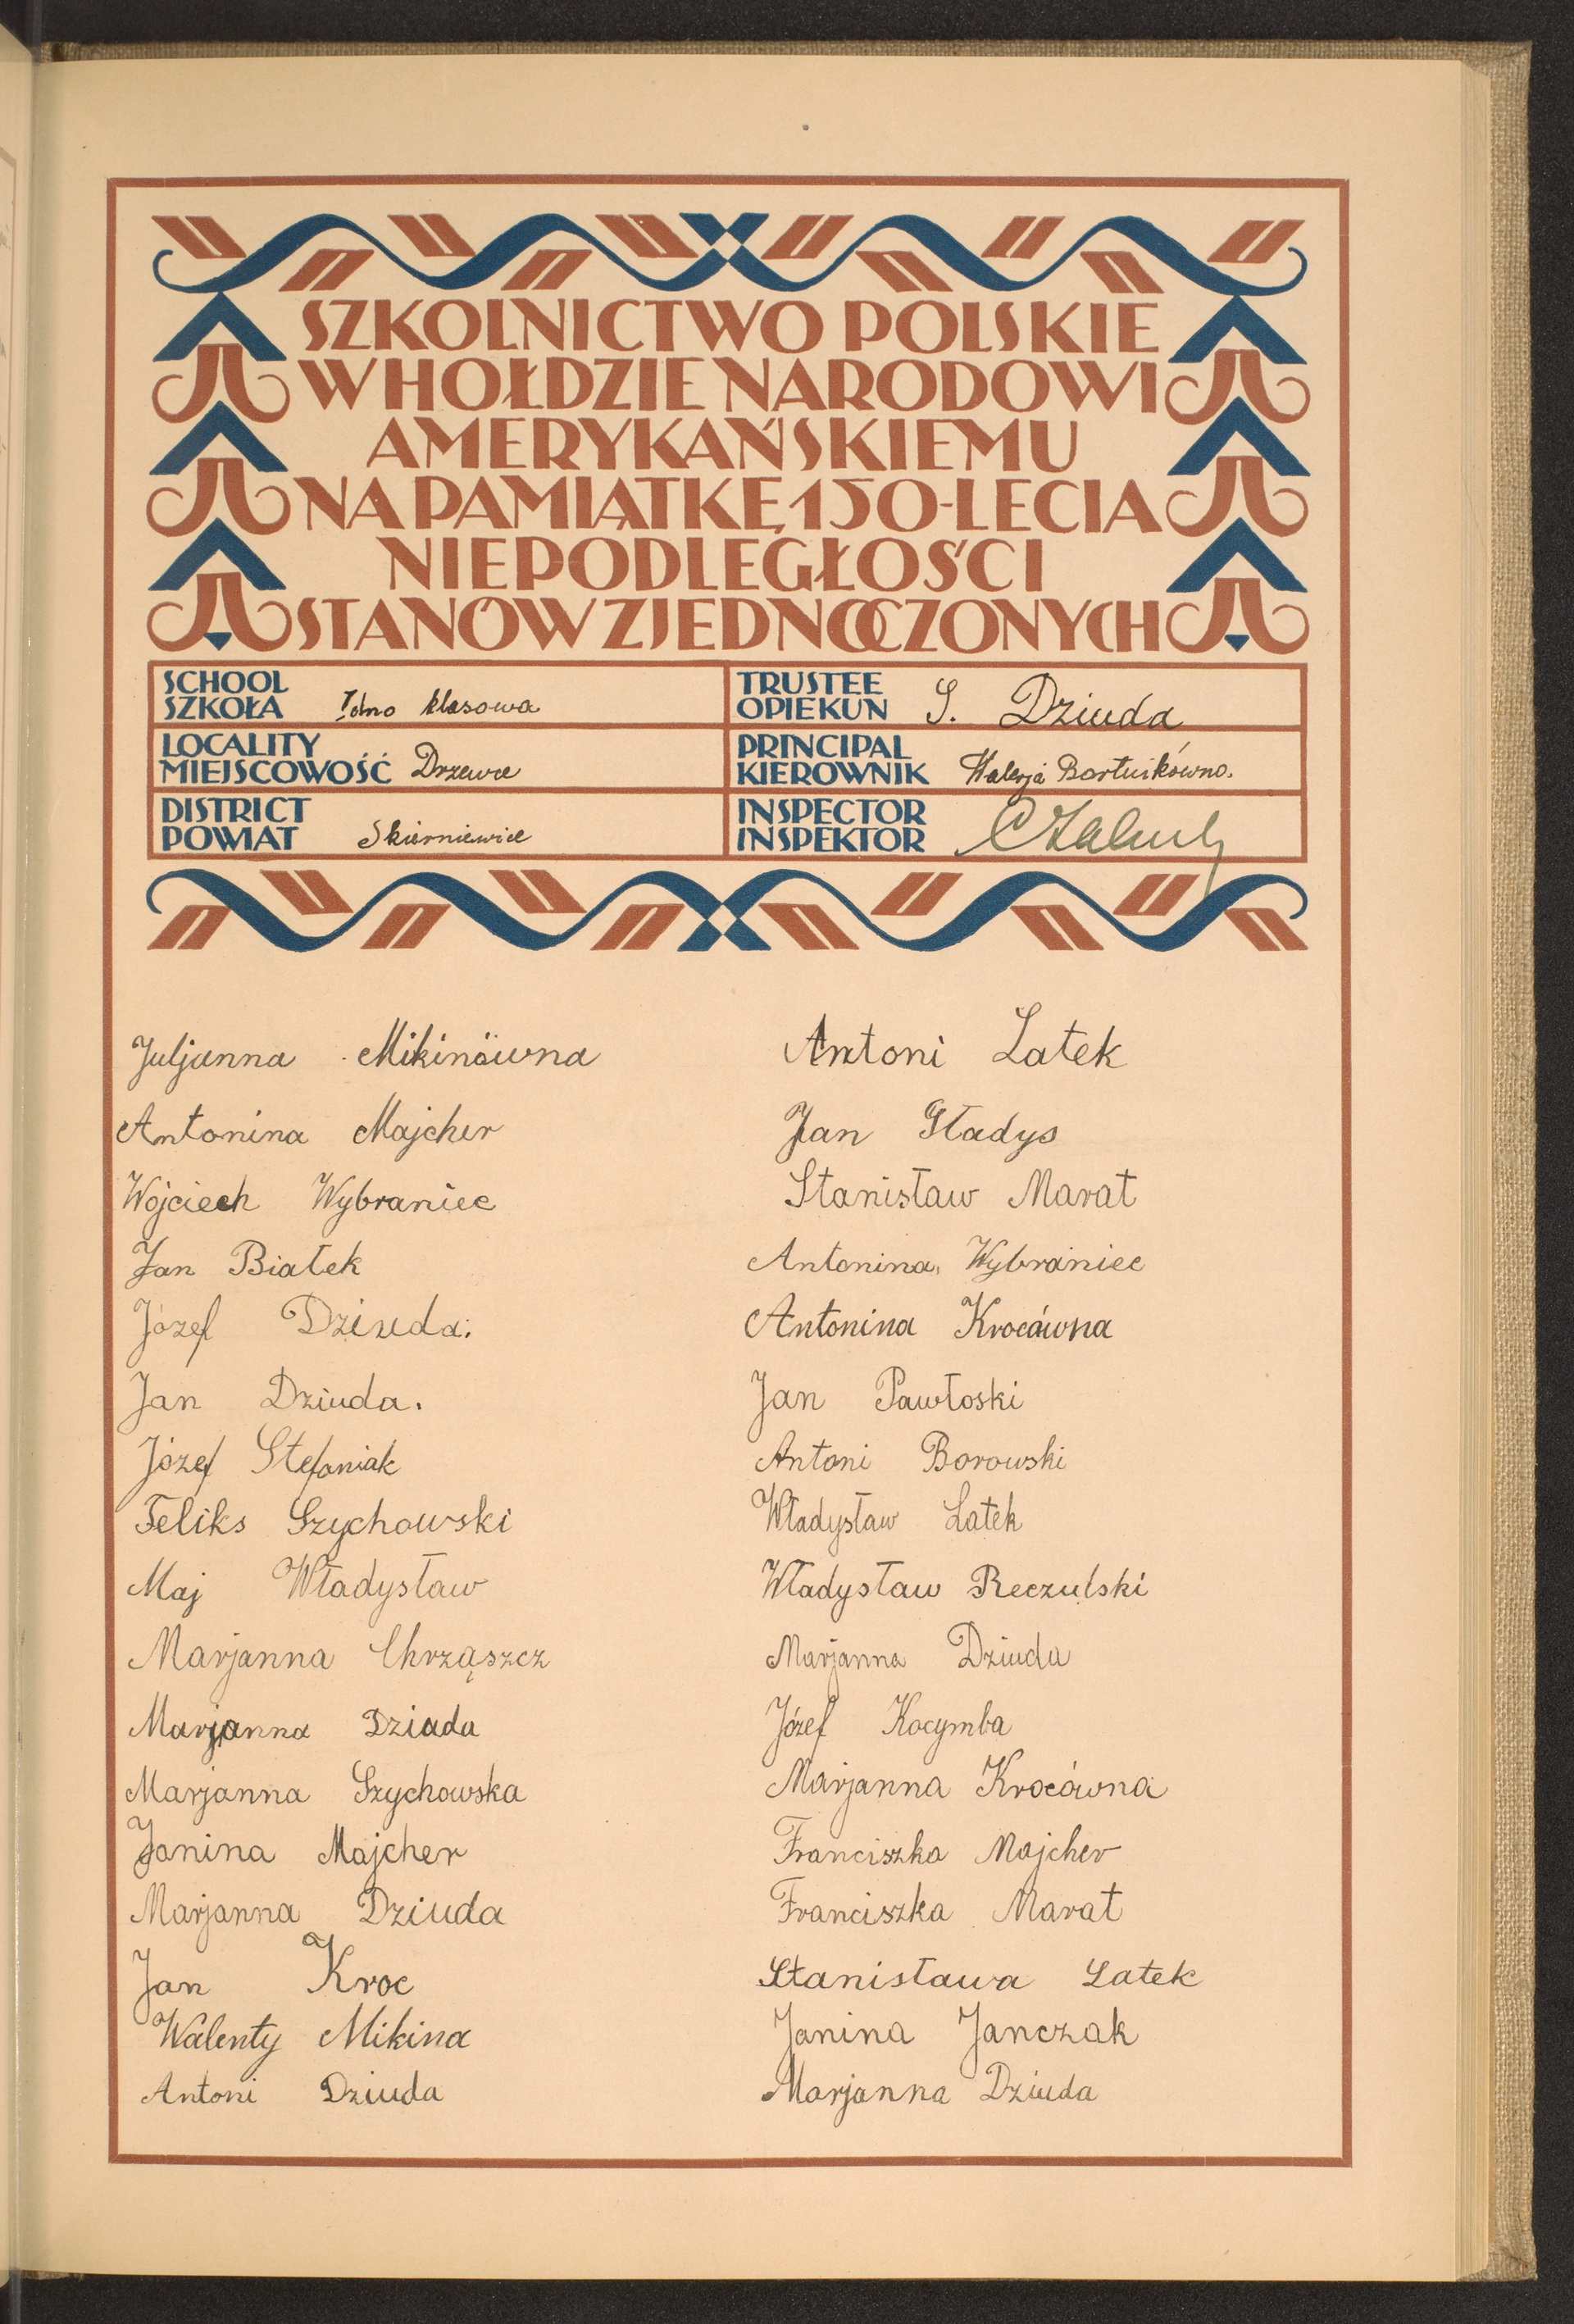 SZKOLNICTWO POLSKIE
W HOŁDZIE NARODOWI
AMERYKAŃSKIEMU
NA PAMIĄTKĘ 150-LECIA
NIEPODLEGŁOŚCI
STANÓW ZJEDNOCZONYCH
SCHOOL
SZKOŁA klasowa
TRUSTEE
OPIEKUN S. Dziuda
LOCALITY
MIEJSCOWOŚĆ Drzewce
PRINCIPAL
KIEROWNIK Walerja Bartnikówna.
DISTRICT
POWIAT Skierniewice
INSPECTOR
INSPEKTOR
Juljanna Mikinówna
Antonina Majcher
Wojciech Wybraniec
Jan Białek
Józef Dziuda.
Jan Dziuda.
Józef Stefaniak
Feliks Szychowski
Maj Władysław
Marjanna Chrząszcz
Marjanna Dziada
Marjanna Szychowska
Janina Majcher
Marjanna Dziuda
Jan Kroc
Walenty Mikina
Antoni Dziuda
Antoni Latek
Jan Gładys
Stanisław Marat
Antonina Wybraniec
Antonina Krocówna
Jan Pawłoski
Antoni Borowski
Władysław Latek
Władysław Reczulski
Marjanna Dziuda
Józef Kocymba
Marjanna Krocówna
Franciszka Majcher
Franciszka Marat
Stanisława Latek
Janina Janczak
Marjanna Dziuda